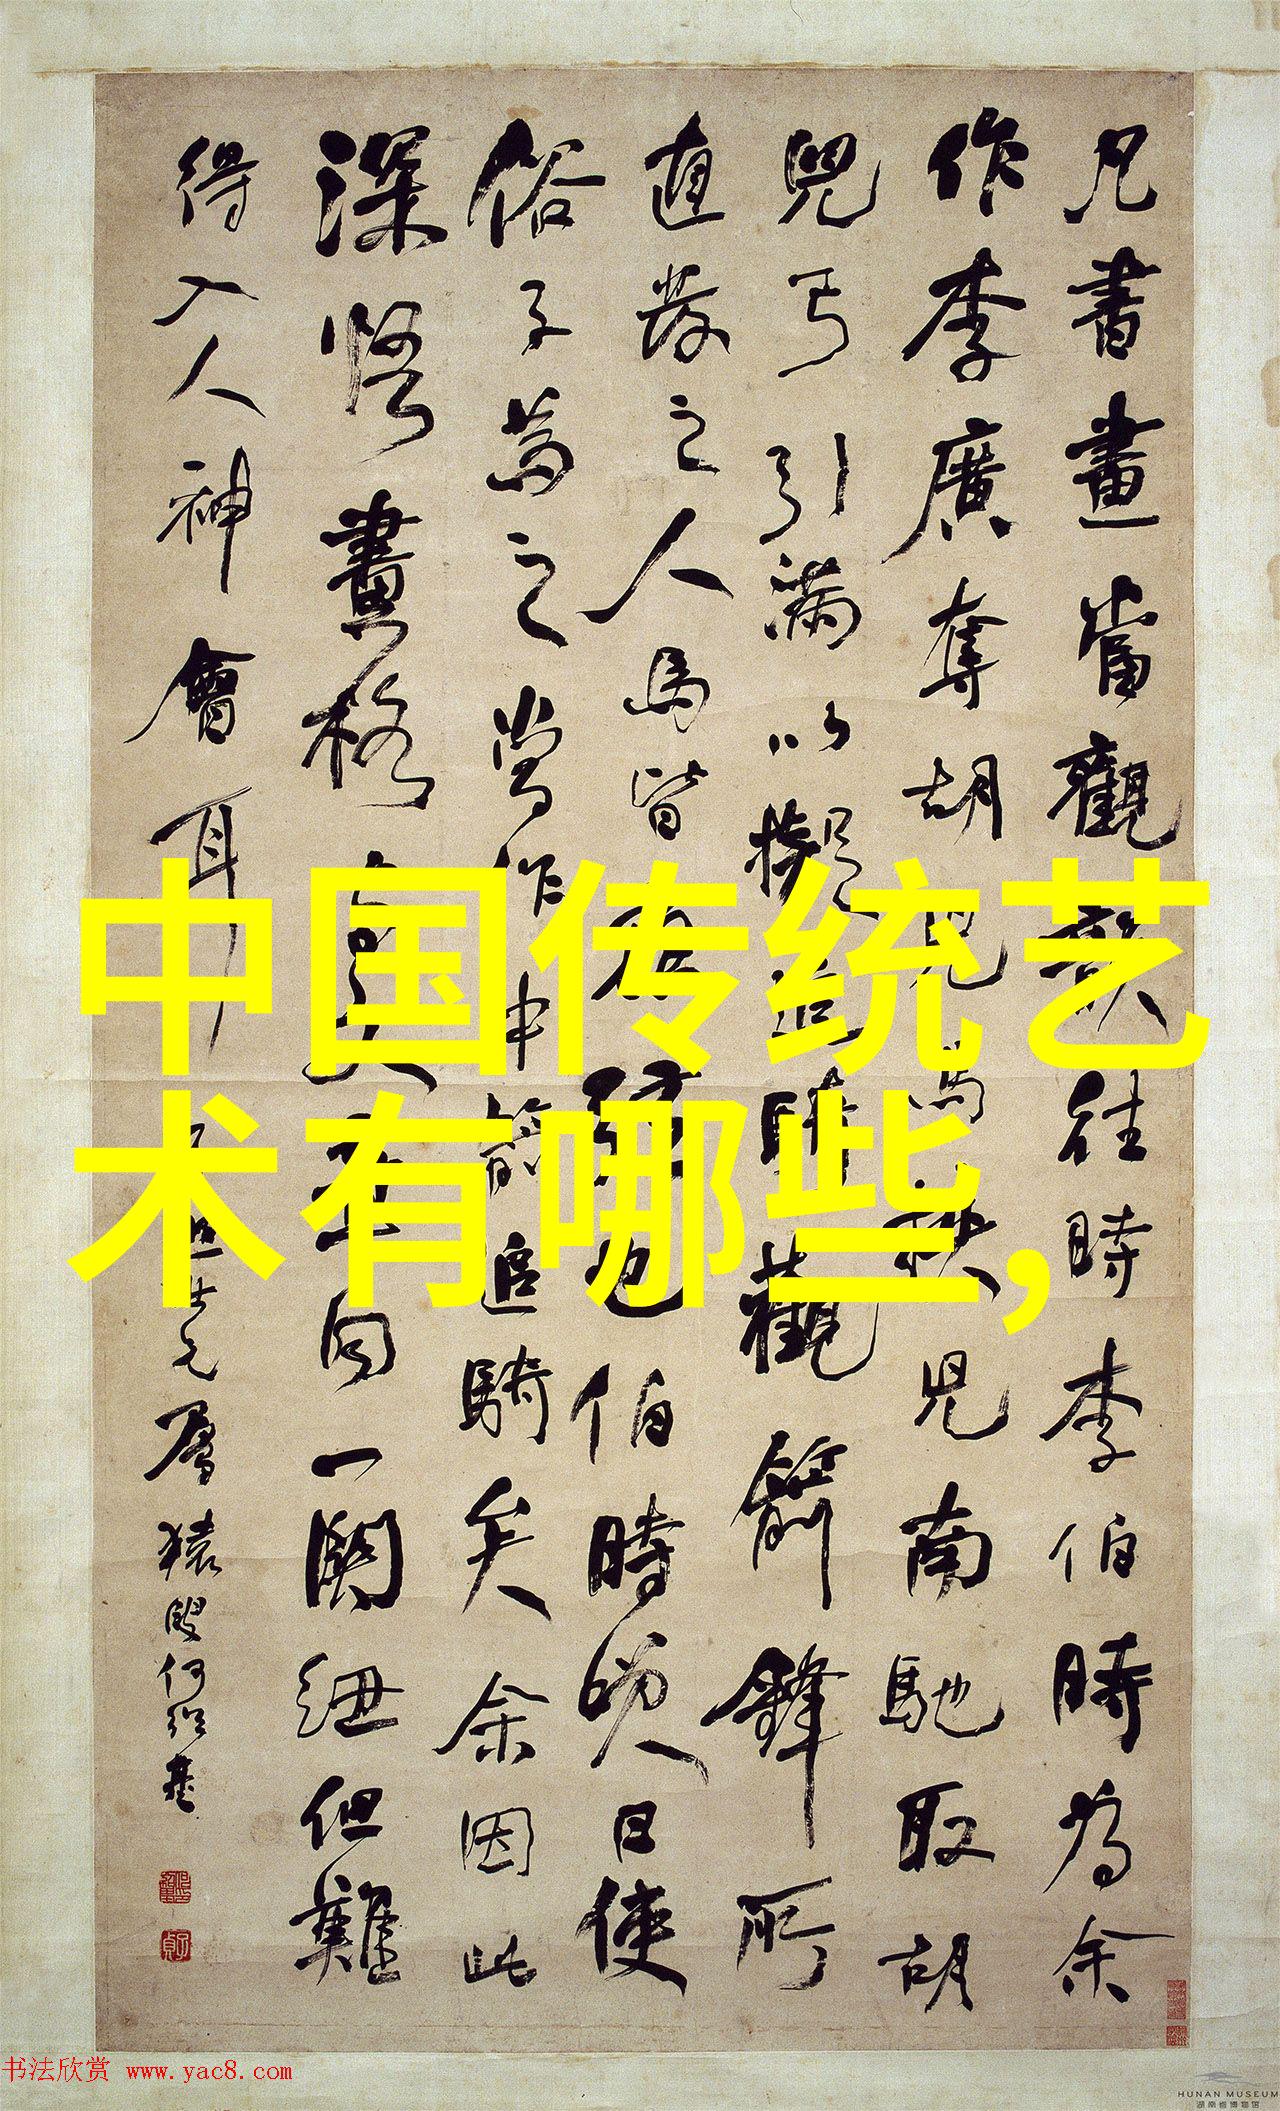 凡書畫當觀韻往時李伯時為余
作李廣奪胡兒馬挾兒南馳取胡
兒弓引滿以擬追騎觀箭鋒所
直發之人馬皆應弦也伯時笑曰使
俗子為之當作中箭追騎矣余因此
深悟畫格此與文章同一關紐但難
得入人神會耳
屬猿叟何紹基
中国传统艺
术有哪些,
书法欣赏 www.yac8.com
HUNAN MUSEUM
湖南省博物馆